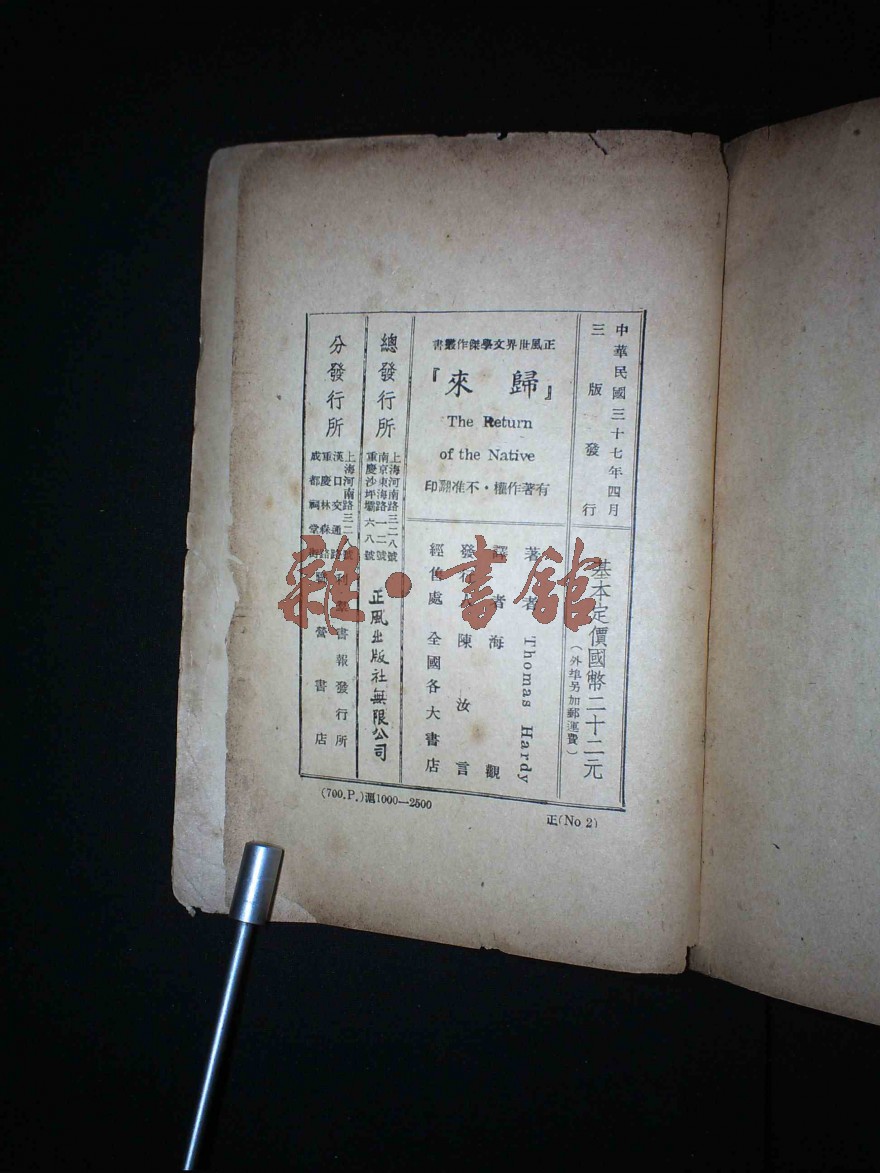 中華民國三十七年四月
三版發行
基本定價國幣二十二元
(外埠另加郵運費)
正風世界文學傑作叢書
『歸來』
The Return
of the Native
有著作權・不准翻印
著者 Thomas Hardy
譯者 海觀
發行人 陳汝言
經售處 全國各大書店
總發行所
上海河南路三二八號
南京東海路一二號
重慶沙坪壩六八號
正風出版社無限公司
分發行所
上海河南路三二號
書報發行所
漢口交通路
重慶林森路
成都祠堂街
營書店
(700.P.)滬1000—2500
正(No 2)
雜・書館